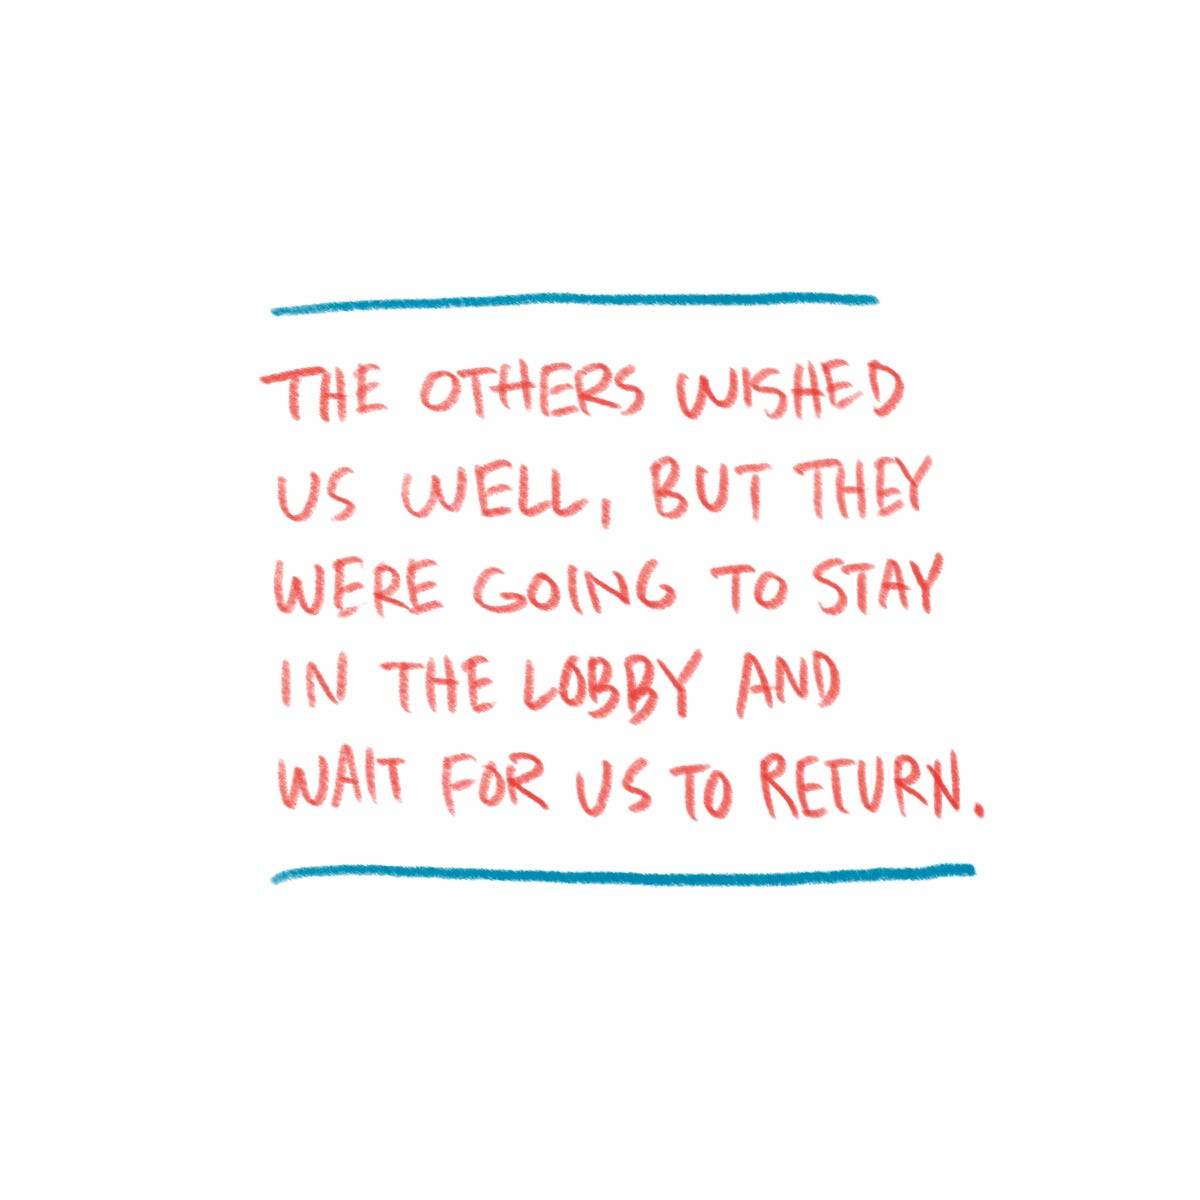 THE OTHERS WISHED
US WELL, BUT THEY
WERE GOING TO STAY
IN THE LOBBY AND
WAIT FOR US TO RETURN.